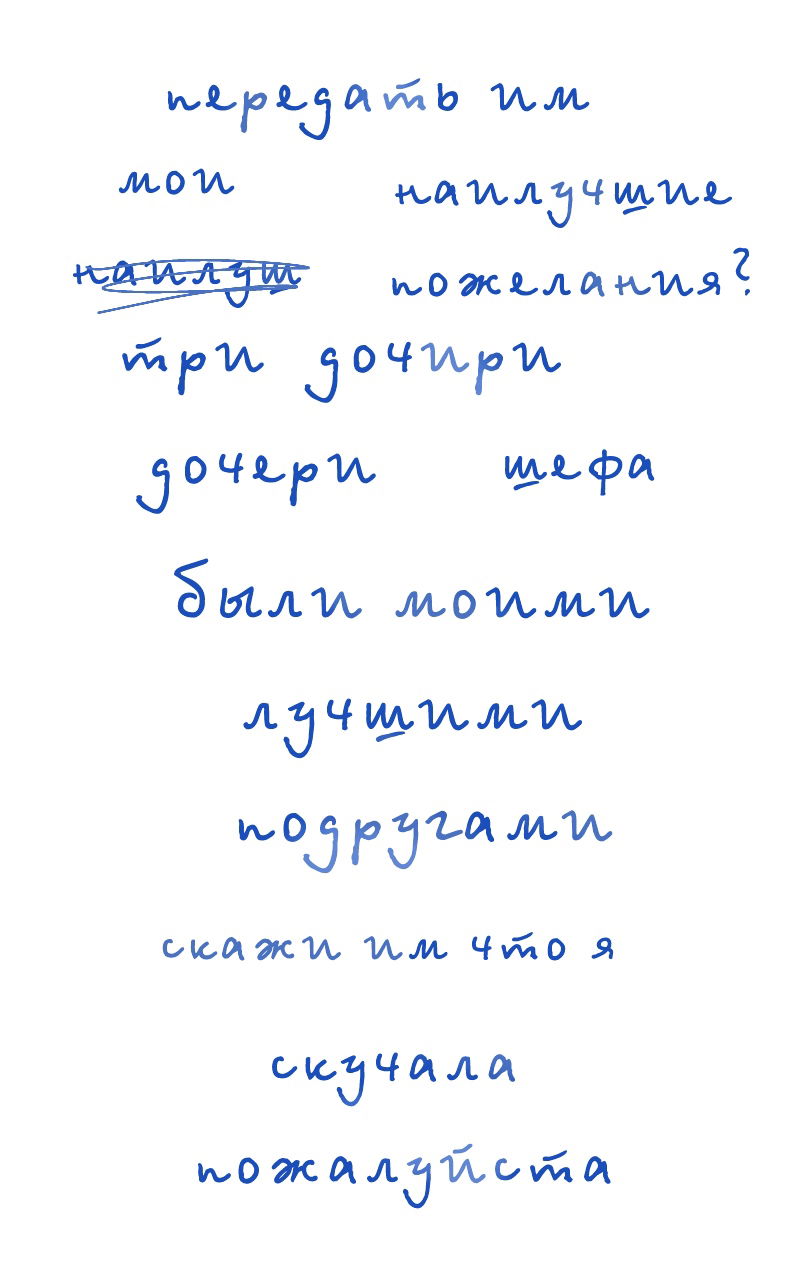 передать им
мои наилучшие
наилуш пожелания?
три дочири
дочери шефа
были моими
лучшими
подругами
скажи им что я
скучала
пожалуйста